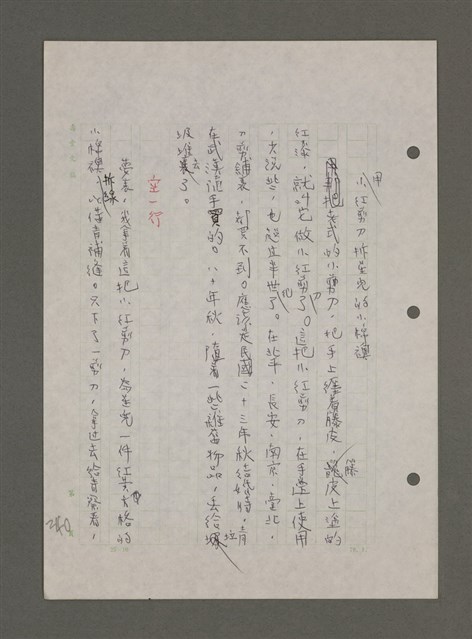 用小紅剪刀拆坐兒的小棉襖
把老式的小剪刀，把手上纏着籐皮，籐皮上塗的
紅漆，就叫它做小紅剪刀了。這把小紅剪刀，在手邊上使用
，少說些，也超過半世紀了。在北平，長安，南京，臺北，
刀剪舖裏，都買不到。應該是民國二十三年秋結婚時，青
在武漢 手買的。八十年秋，隨着一些雜舊物品，丟給垃
圾堆去了。
空一行
夢裏，我拿着這把小紅剪刀，為坐兒一件紅黃方格的
小棉襖拆線，以待青補縫。只下了一剪刀，拿過去給青察看，